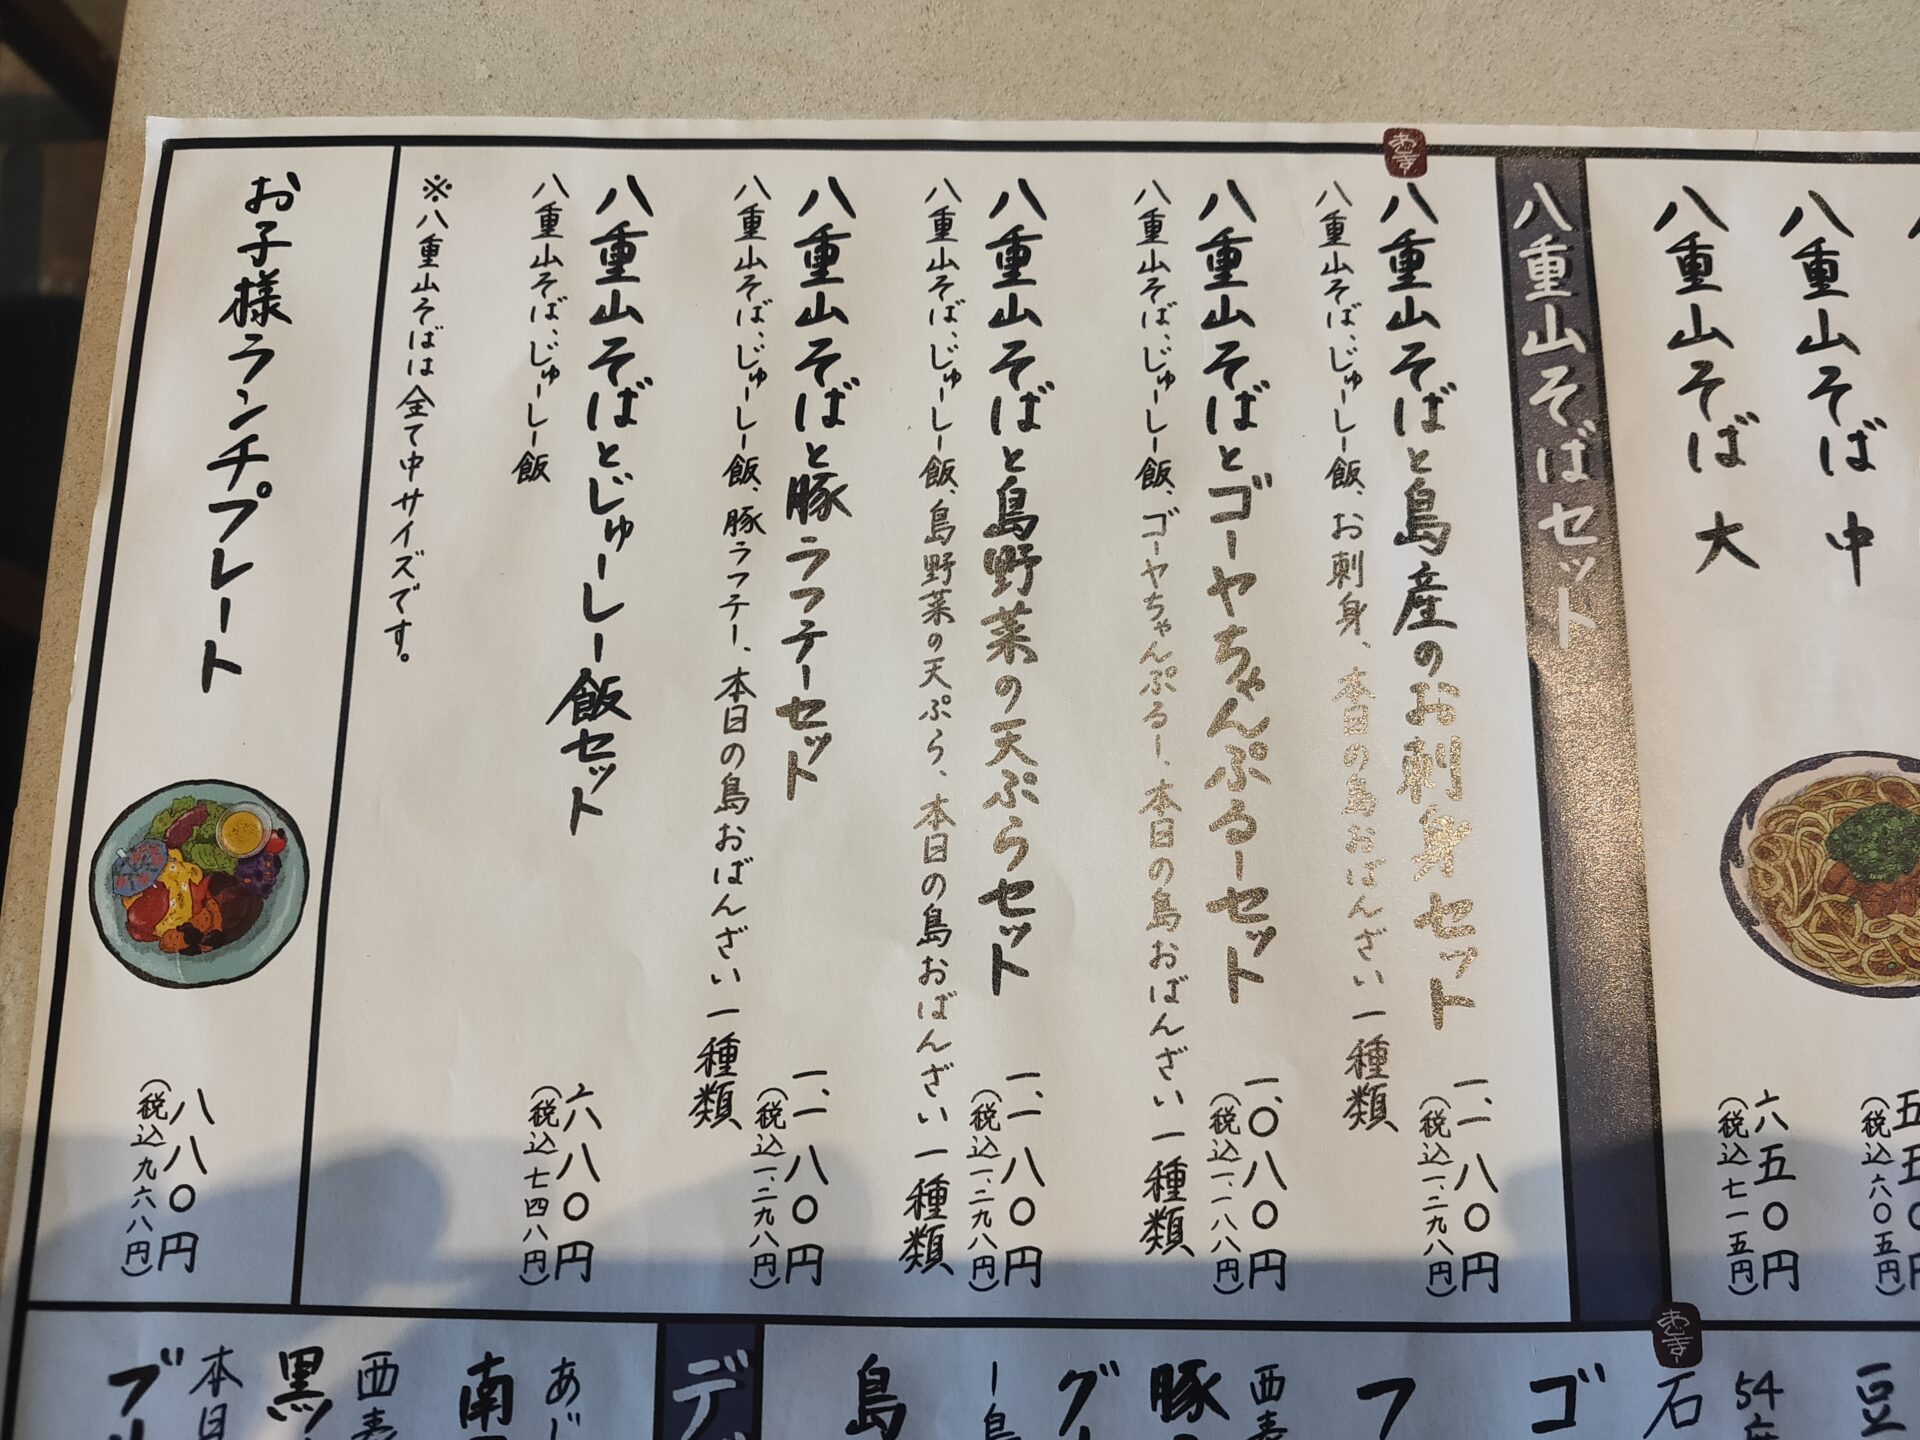 八重山そば 中
五五〇円
(税込六〇五円)
八重山そば 大
六五〇円
(税込七一五円)
八重山そばセット
八重山そばと島産のお刺身セット
一、一八〇円
(税込一、二九八円)
八重山そば、じゅーしー飯、お刺身、本日の島おばんざい一種類
八重山そばとゴーヤちゃんぷるーセット
一、〇八〇円
(税込一、一八八円)
八重山そば、じゅーしー飯、ゴーヤちゃんぷるー、本日の島おばんざい一種類
八重山そばと島野菜の天ぷらセット
一、一八〇円
(税込一、二九八円)
八重山そば、じゅーしー飯、島野菜の天ぷら、本日の島おばんざい一種類
八重山そばと豚ラフテーセット
一、一八〇円
(税込一、二九八円)
八重山そば、じゅーしー飯、豚ラフテー、本日の島おばんざい一種類
八重山そばとじゅーしー飯セット
六八〇円
(税込七四八円)
八重山そば、じゅーしー飯
※八重山そばは全て中サイズです。
お子様ランチプレート
八八〇円
(税込九六八円)
豆
54
石
ゴ
フ
西表
豚
グ
ー島
島
デ
あじ
南
西表
黒
本日
ブ